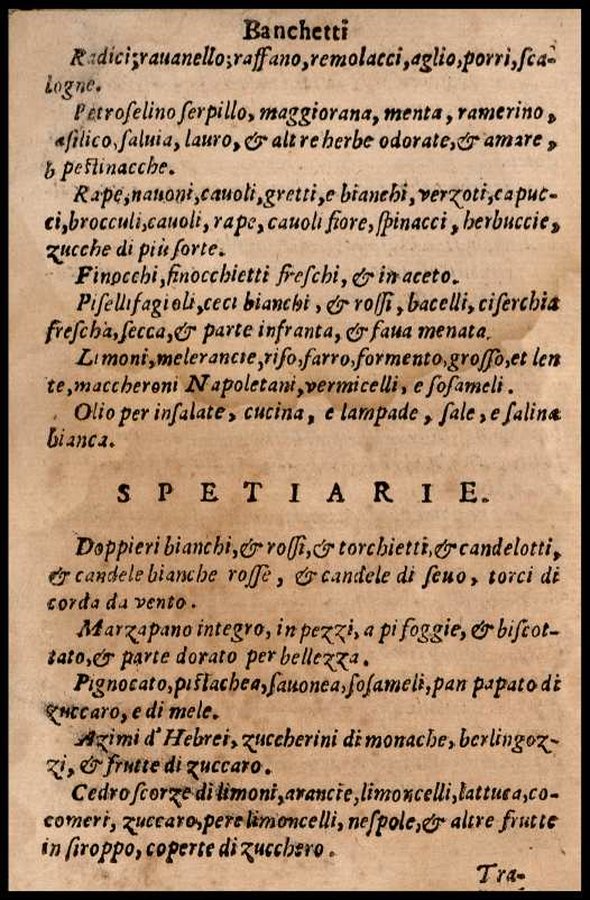 Banchetti
Radici,rauanello,raffano,remolacci,aglio,porri,ſca-
logne.
Petroſelino ſerpillo, maggiorana, menta, ramerino,
aſilico,ſaluia, lauro, & altre herbe odorate,& amare,
peſtinacche.
Rape,nauoni,cauoli,gretti,e bianchi,verzoti,capuc-
ci,brocculi,cauoli, rape, cauoli fiore, ſpinacci, herbuccie,
zucche di più ſorte.
Finocchi,finocchietti freſchi, & in aceto.
Piſelli fagioli,ceci bianchi, & roſſi, bacelli, ciſerchia
freſcha,ſecca,& parte infranta, & faua menata.
Limoni,melerancie,riſo,farro,formento,groſſo,et len
te,maccheroni Napoletani,vermicelli, e ſoſameli.
Olio per inſalate, cucina, e lampade, ſale, e ſalina
bianca.
SPETIARIE.
Doppieri bianchi,& roſſi,& torchietti,& candelotti,
& candele bianche roſſe, & candele di ſeuo, torci di
corda da vento.
Marzapano integro, in pezzi, a pi foggie, & biſcot-
tato,& parte dorato per bellezza.
Pignocato,piſtachea,ſauonea,ſoſameli,pan papato di
zuccaro, e di mele.
Azimi d'Hebrei, zuccherini di monache, berlingoz-
zi, & frutte di zuccaro.
Cedro ſcorze di limoni,arancie,limoncelli,lattuca,co-
comeri, zuccaro,pere limoncelli, neſpole,& altre frutte
in ſiroppo, coperte di zucchero.
Tra-